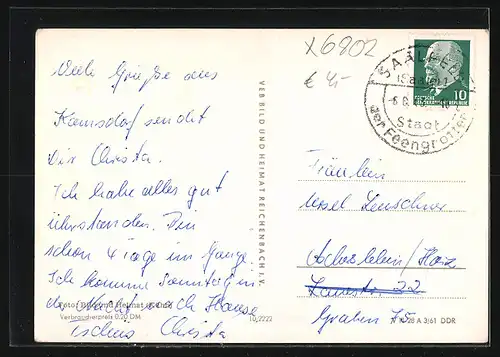 X6802
€ 4,-
Viele Grüße aus
Kamsdorf sendet
Dir Christa.
Ich habe alles gut
überstanden. Bin
schon 4 Tage im Gange.
Ich komme Sonntag in
der Nacht nach Hause
Christa
Foto: Bild und Heimat
Verbraucherpreis 0,20 DM
10/2222
VEB BILD UND HEIMAT REICHENBACH I. V.
SAALFELD
(Saale)
Stadt
der Feengrotten
10
DEUTSCHE
DEMOKRATISCHE REPUBLIK
Fräulein
Ursel
Aschersleben/Harz
22
Graben
A 3/61 DDR